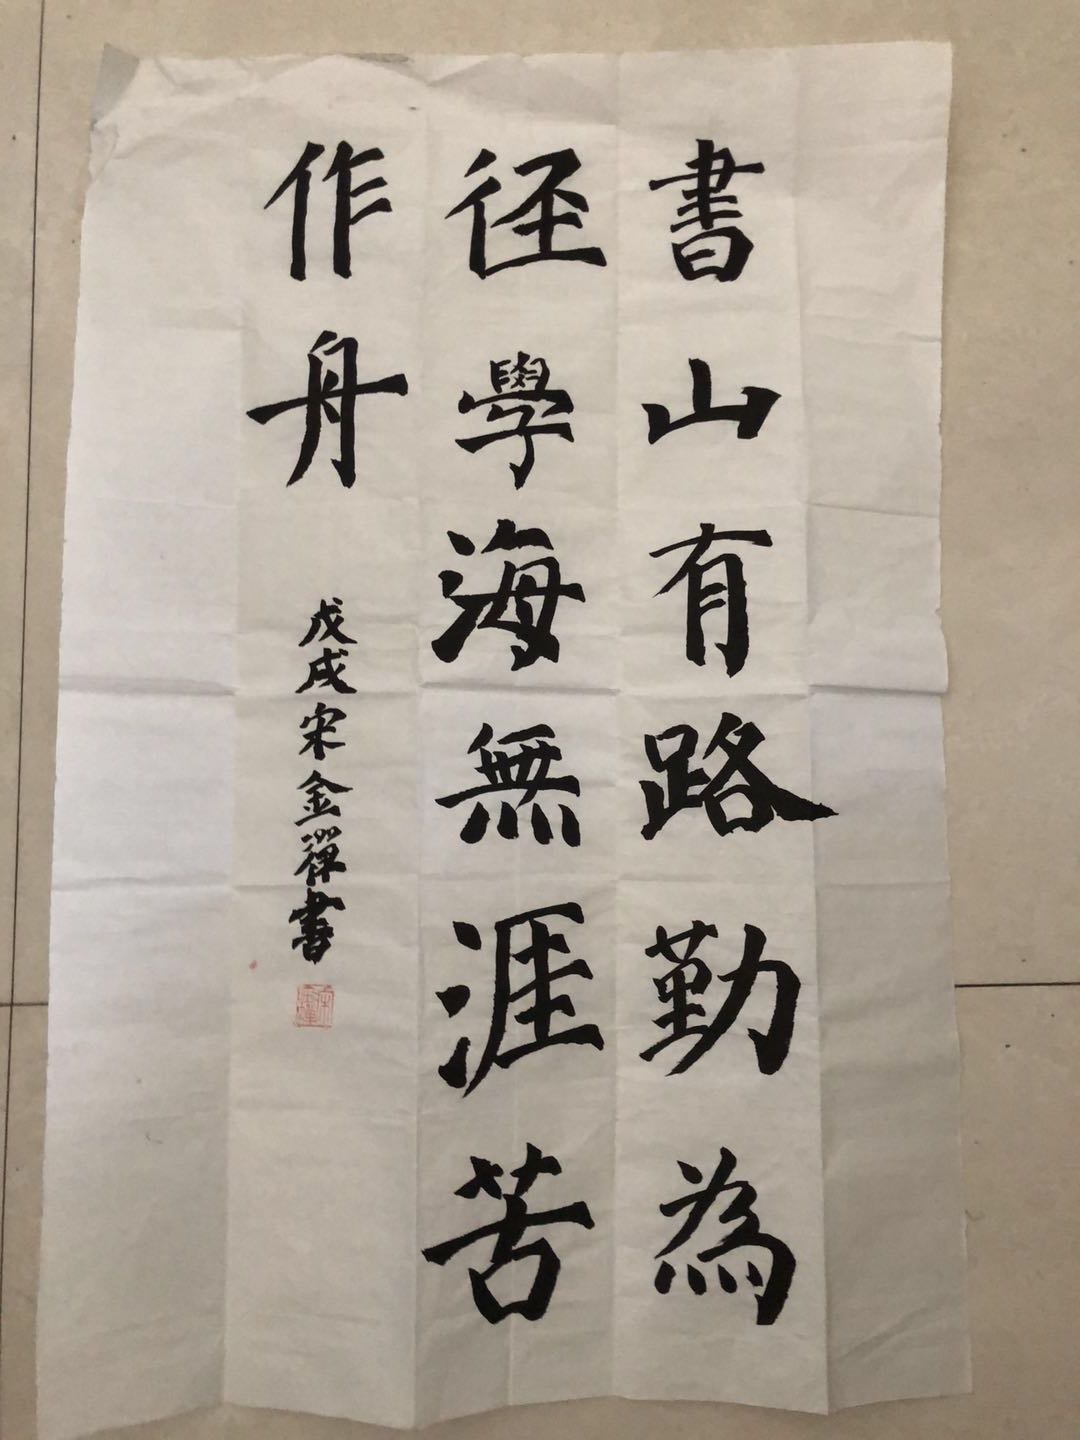 書山有路勤為
径學海無涯苦
作舟
戊戌宋金禪書